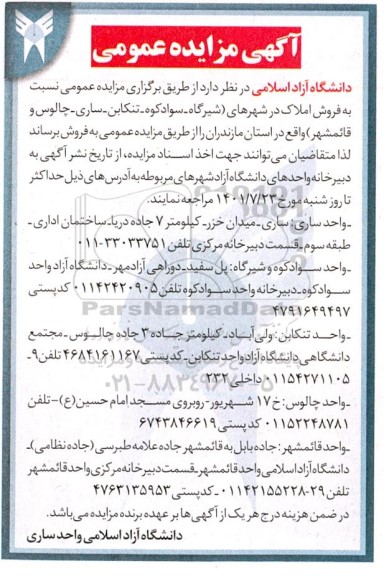 آگهی مزایده عمومی
دانشگاه آزاد اسلامی در نظر دارد از طریق برگزاری مزایده عمومی نسبت
به فروش املاک در شهرهای (شیرگاه-سوادکوه-تنکابن-ساری-چالوس و
قائمشهر) واقع در استان مازندران را از طریق مزایده عمومی به فروش برساند
لذا متقاضیان می‌توانند جهت اخذ اسناد مزایده، از تاریخ نشر آگهی به
دبیرخانه واحدهای دانشگاه آزاد شهرهای مربوطه به آدرس‌های ذیل حداکثر
تا روز شنبه مورخ ۱۴۰۱/۷/۲۳ مراجعه نمایند.
-واحد ساری: ساری-میدان خزر-کیلومتر ۷ جاده دریا-ساختمان اداری-
طبقه سوم-قسمت دبیرخانه مرکزی تلفن ۳۳۰۳۳۷۵۱-۰۱۱
-واحد سوادکوه و شیرگاه: پل سفید-دوراهی آزادمهر-دانشگاه آزاد واحد
سوادکوه-دبیرخانه واحد سوادکوه تلفن ۰۱۱۴۲۴۲۰۹۰۵ کدپستی
۴۷۹۱۶۴۹۴۹۷
-واحد تنکابن: ولی آباد-کیلومتر ۳ جاده چالوس-مجتمع
دانشگاهی دانشگاه آزاد واحد تنکابن-کدپستی ۴۶۸۴۱۶۱۱۶۷ تلفن ۹-
۰۱۱۵۴۲۷۱۱۰۵ داخلی ۲۳۲
-واحد چالوس: خ ۱۷ شهریور-روبروی مسجد امام حسین(ع)-تلفن
۰۱۱۵۲۲۴۸۷۸۱ کدپستی ۶۷۴۳۸۴۶۶۱۹
-واحد قائمشهر: جاده بابل به قائمشهر جاده علامه طبرسی (جاده نظامی)-
دانشگاه آزاد اسلامی واحد قائمشهر-قسمت دبیرخانه مرکزی واحد قائمشهر
تلفن ۲۹-۰۱۱۴۲۱۵۵۲۲۸-کدپستی ۴۷۶۳۱۳۵۹۵۳
در ضمن هزینه درج هر یک از آگهی‌ها بر عهده برنده مزایده می‌باشد.
دانشگاه آزاد اسلامی واحد ساری
ParsNamadData
۰۲۱-۸۸۳۴۹۶۷۰-۵